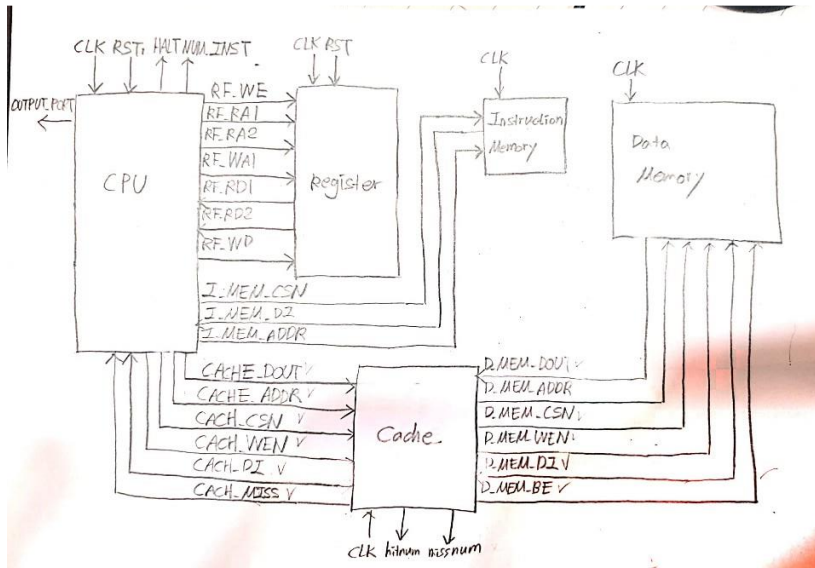 CLK RST HALT NUM_INST
CLK RST
CLK
CLK
OUTPUT_PORT
CPU
RF_WE
RF_RA1
RF_RA2
RF_WA1
RF_RD1
RF_RD2
RF_WD
Register
Instruction
Memory
Data
Memory
I_MEM_CSN
I_MEM_DI
I_MEM_ADDR
CACHE_DOUT ✓
CACHE_ADDR ✓
CACH_CSN ✓
CACH_WEN ✓
CACH_DI ✓
CACH_MISS ✓
Cache
D_MEM_DOUT ✓
D_MEM_ADDR
D_MEM_CSN ✓
D_MEM_WEN ✓
D_MEM_DI ✓
D_MEM_BE ✓
CLK hitnum missnum